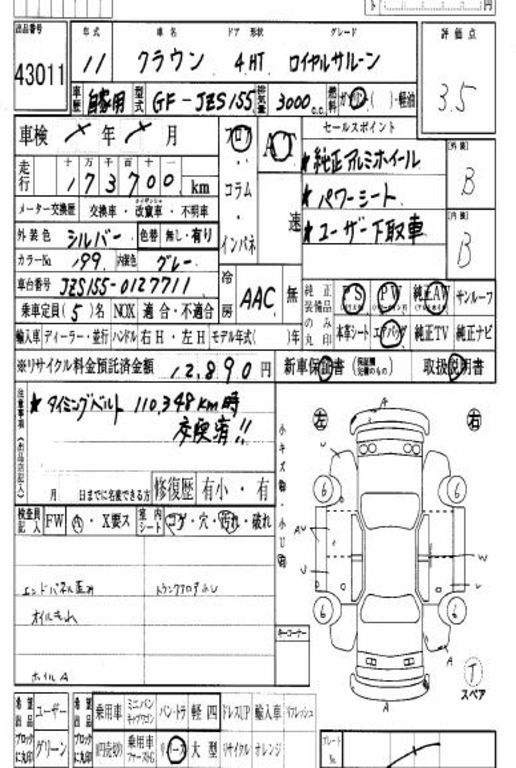 円
出品番号 年式 車名 ドア 形状 グレード 評価点
43011 11 クラウン 4HT ロイヤルサルーン 3.5
車歴 自家用 型式 GF-JZS155 排気量 3000 c.c. 燃料 ガソリン( )・軽油
車検 年 月 フロア・コラム・インパネ AT 速 セールスポイント 外装 B
走行 十万千百十一 173700 km ★純正アルミホイール
★パワーシート
メーター交換歴 交換車・改竄車・不明車 ★ユーザー下取車 内装 B
外装色 シルバー 色替 無し・有り
カラーNo 199 内装色 グレー
車台番号 JZS155-0127711 冷房 AAC 無 純正装備品のみ丸印 PS PW 純正AW サンルーフ
乗車定員(5)名 NOX 適合・不適合
輸入車 ディーラー・並行 ハンドル 右H・左H モデル年式( )年 本革シート エアバッグ 純正TV 純正ナビ
※リサイクル料金預託済金額 12,890円 新車保証書 取扱説明書
注意事項(出品店記入) ★タイミングベルト 110,348km時
交換済!!
月 日までに名変できる方 修復歴 有小・有
小キズ 小U
左 右
A
U
6 6
AU W
U U
6 6
A
A
検査員記入 FW A・X要ス 室内シート コゲ・穴・汚れ・破れ
エンドパネル歪み
オイルもれ
ホイルA
キーコーナー
T
スペア
希望出品ブロックに丸印 ユーザー グリーン 乗用車 ミニバン バン・トラ 軽四 ドレスUP 輸入車 リフレッシュ
乗用車 リバース 大型 リサイクル オレンジ
プレート No.